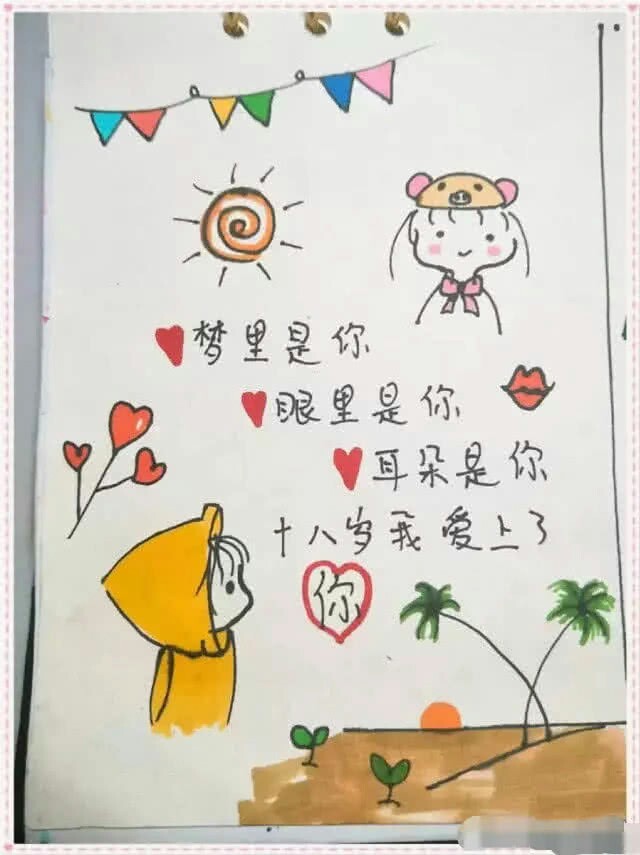 梦里是你
眼里是你
耳朵是你
十八岁我爱上了
你